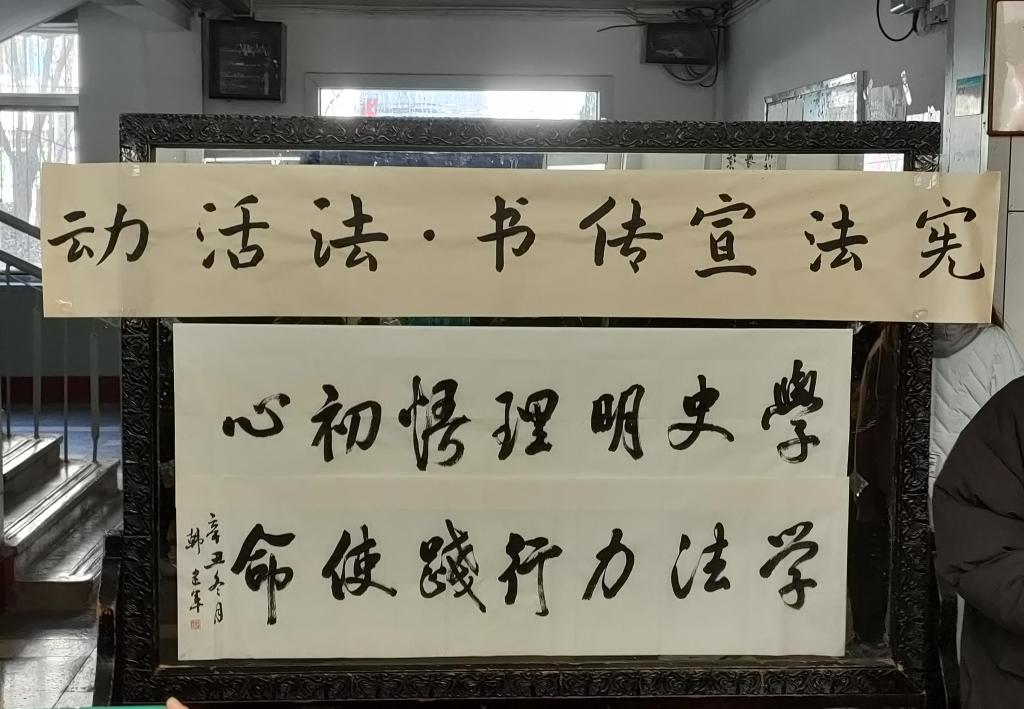 宪法宣传书·法活动
學史明理悟初心
学法力行踐使命
辛丑冬月
韩建军